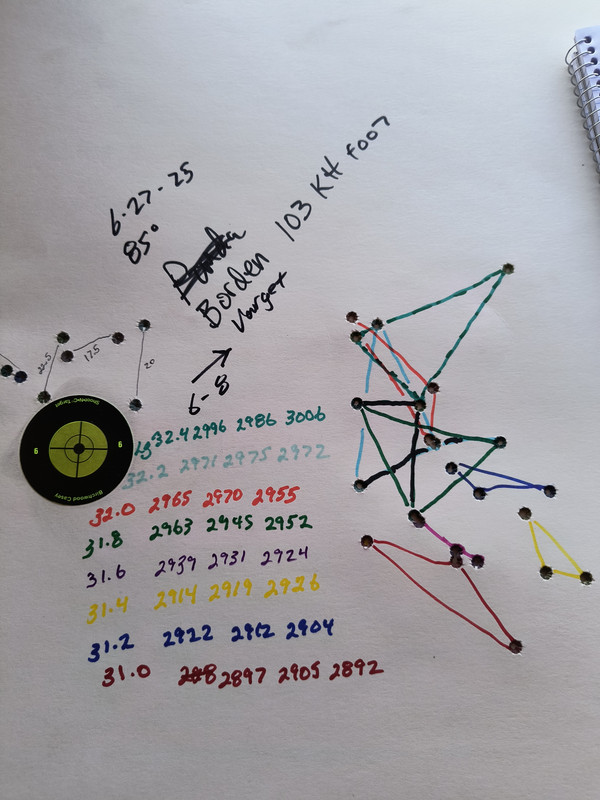 6-27-25
85°
Borden 103 KH foot
Varget
6-8
22.5
17.5
20
Shoot•N•C Target
6 6
Birchwood Casey
32.4 2996 2986 3006
32.2 2971 2975 2972
32.0 2965 2970 2955
31.8 2963 2945 2952
31.6 2939 2931 2924
31.4 2914 2919 2926
31.2 2922 2912 2904
31.0 2897 2905 2892